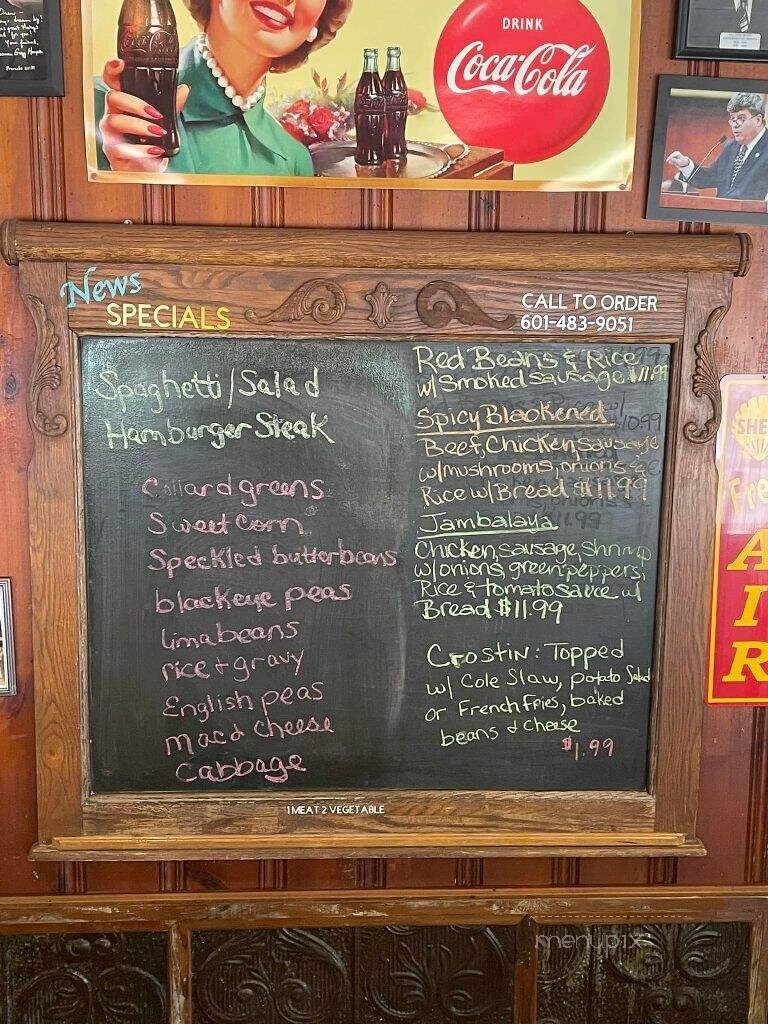 DRINK
Coca-Cola
News
SPECIALS
CALL TO ORDER
601-483-9051
Spaghetti/Salad
Hamburger Steak
Collard greens
Sweet corn
Speckled butterbeans
blackeye peas
lima beans
rice + gravy
English peas
Mac & cheese
Cabbage
Red Beans & Rice
w/Smoked sausage $11.99
Spicy Blackened
Beef, Chicken, sausage
w/mushrooms, onions &
Rice w/Bread $11.99
Jambalaya
Chicken, sausage, shrimp
w/onions, green peppers,
Rice & tomato sauce w/
Bread $11.99
Crostin: Topped
w/ Cole Slaw, potato Salad
or French Fries, baked
beans & cheese
$1.99
1 MEAT 2 VEGETABLE
SHE
Fre
A
I
R
menupix